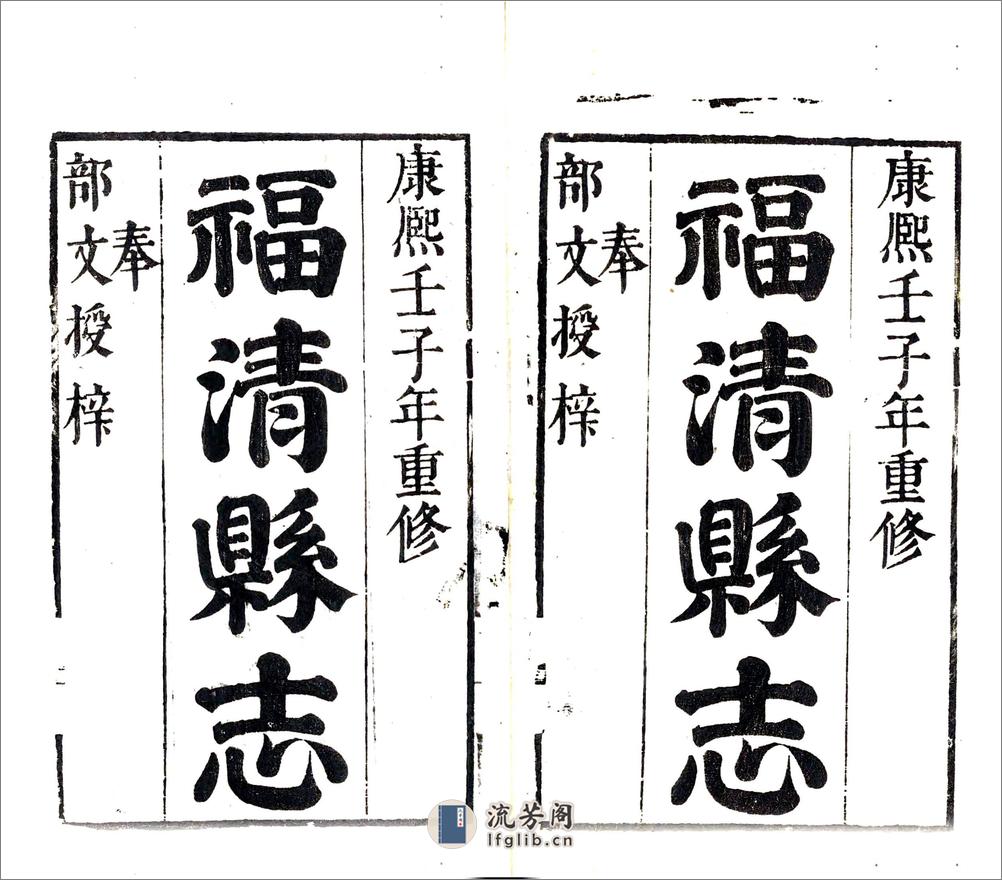 康熙壬子年重修
福清縣志
奉
部文授梓
康熙壬子年重修
福清縣志
奉
部文授梓
流芳阁
lfglib.cn